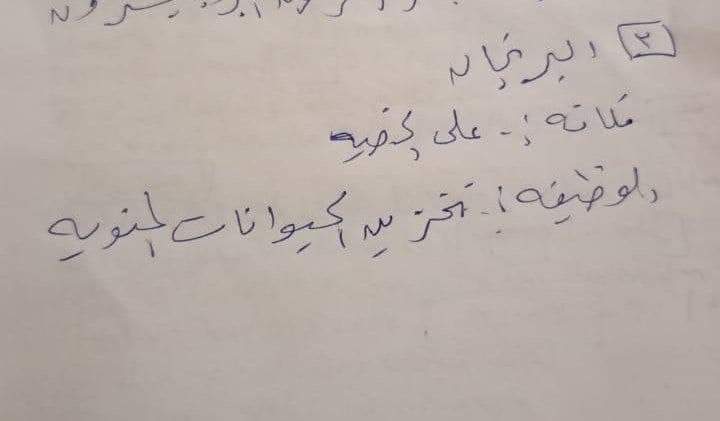 ٢ البربخان
مكانه :- على الخصيه
الوظيفه :- تخزين الحيوانات المنويه